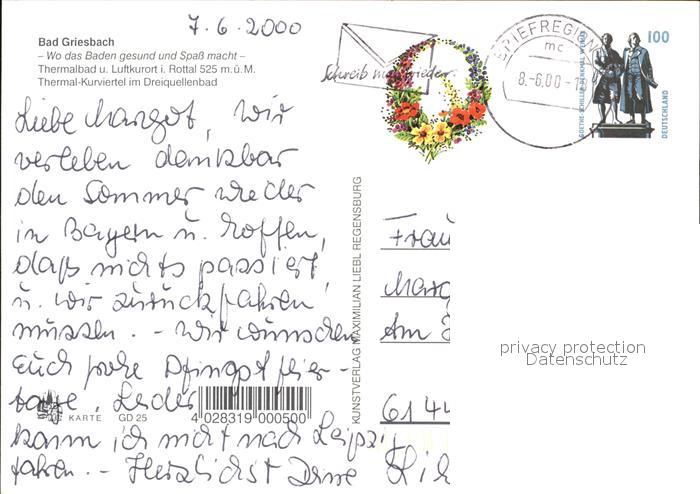 7.6.2000
Bad Griesbach
– Wo das Baden gesund und Spaß macht –
Thermalbad u. Luftkurort i. Rottal 525 m.ü.M.
Thermal-Kurviertel im Dreiquellenbad
Schreib mal wieder.
BRIEFREGION
mc
8.-6.00-1
100
GOETHE-SCHILLER-DENKMAL WEIMAR
DEUTSCHLAND
Liebe Margot, wir
verleben dankbar
den Sommer wieder
in Bayern u. hoffen,
daß nichts passiert
u. wir zurückfahren
müssen. - Wir wünschen
Euch frohe Pfingstfeier-
tage. Leider
kann ich nicht nach Leipzig
fahren. - Herzlichst Deine
KARTE GD 25
4 028319 000500
KUNSTVERLAG MAXIMILIAN LIEBL REGENSBURG
Frau
Marg
Am
6144
privacy protection
Datenschutz